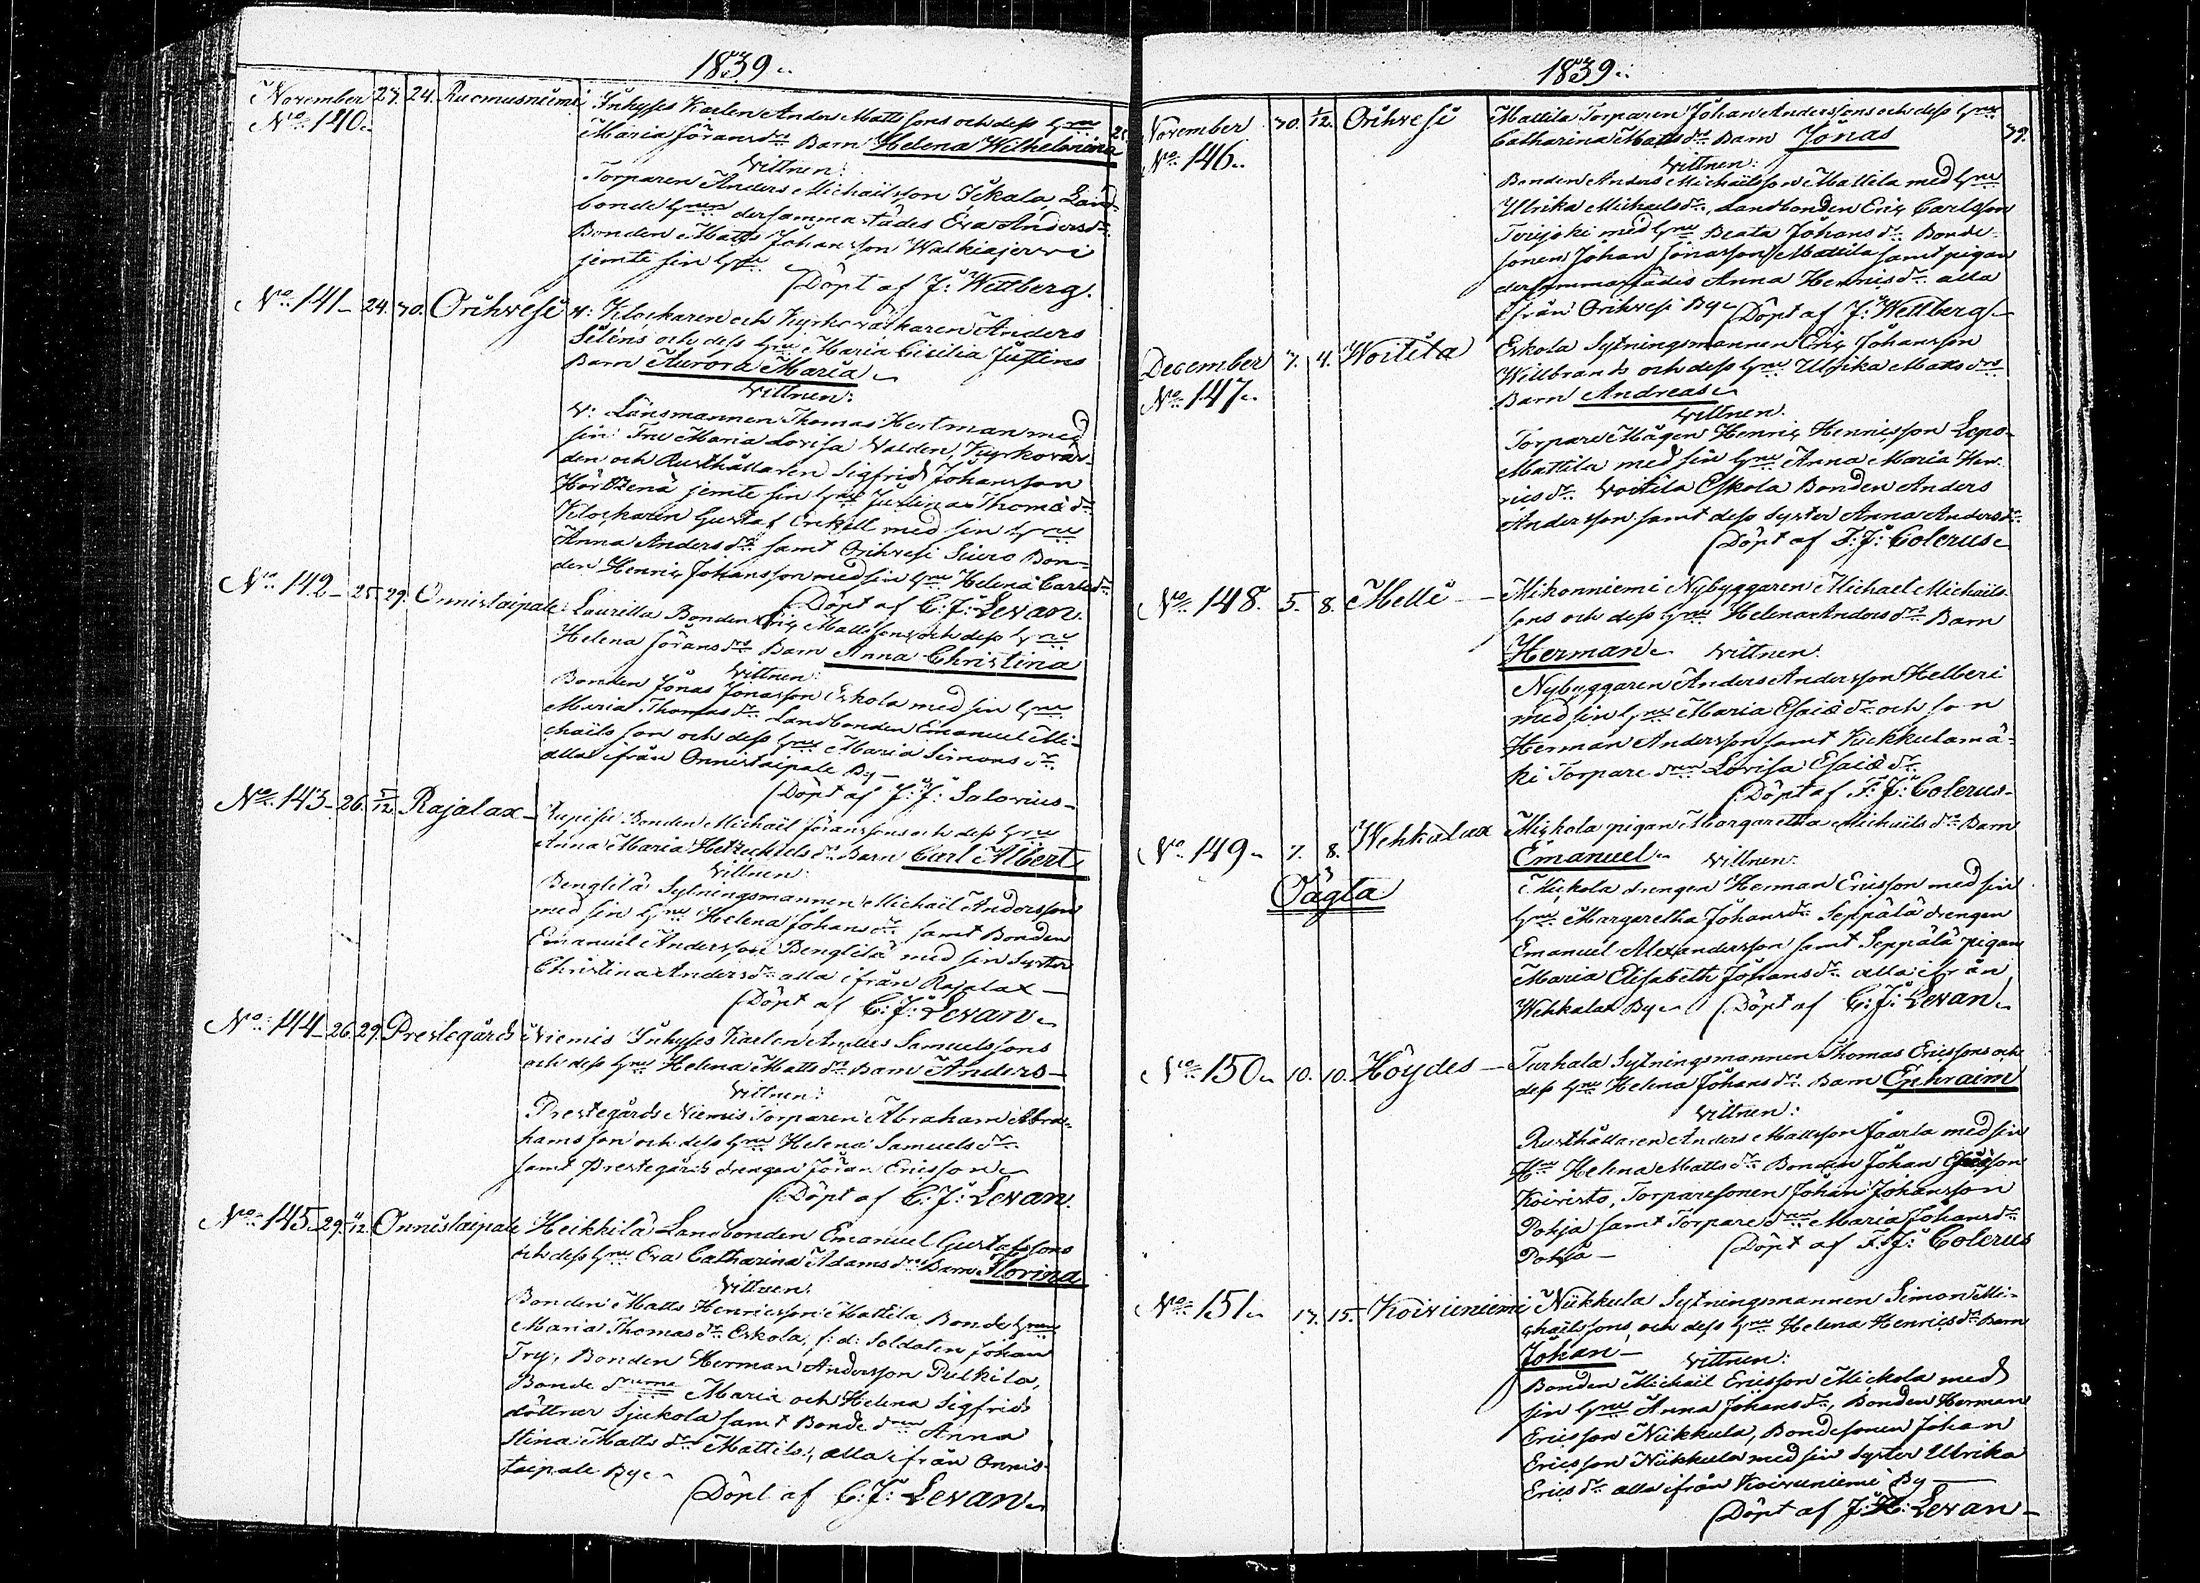 1839.
November 23. 24. Rucmusniemi Inhyses Karlen Anders Mattssons och dess hru
No 140. Maria Jöransdr Barn Helena Wilhelmina
Vittnen:
Torparen Anders Michailsson Iskala, Land-
bonde hrun dersammastädes Eva Andersdr
Bonden Matts Johansson Walkiajervi
jemte sin hru
Döpt af J: Wettberg.
No 141 24. 30. Orihvesi v: Klockaren och Kyrkoväktaren Anders
Siléns och dess hru Maria Cicilia Justins
Barn Aurora Maria
Vittnen:
V: Länsmannen Thomas Hertman med
sin Fru Maria Lovisa Walden, Kyrkovär-
den och Rusthållaren Sigfrid Johansson
jemte sin hru Justina Thomædr
Klockaren Gustaf Enkell med sin hru
Anna Andersdr samt Orihvesi Siuro Bon-
den Henric Johansson med sin hru Helena Carlsdr
Döpt af C: J: Levan.
No 142 25. 29. Onnistaipale Laurilla Bonden Eric Mattssons och dess hru
Helena Jöransdr Barn Anna Christina
Vittnen:
Bonden Jonas Jonasson Eskola med sin hru
Maria Thomasdr Landbonden Emanuel Mi-
chailsson och dess hru Maria Simonsdr
alla ifrån Onnistaipale By
Döpt af J: J: Salovius
No 143 26. 1/12 Rajalax Bonden Michail Jöranssons och dess hru
Anna Maria Hetzechielsdr Barn Carl Albert
Vittnen:
Benglilä Sytningsmannen Michail Andersson
med sin hru Helena Johansdr samt Bonden
Emanuel Andersson Benglilä med sin Syster
Christina Andersdr alla ifrån Rajalax
Döpt af C: J: Levan
No 144 26. 29. Prestegårds Niemis Inhyses Karlen Anders Samuelssons
och dess hru Helena Mattsdr Barn Anders
Vittnen:
Prestegårds Niemis Torparen Abraham Abra-
hamsson och dess hru Helena Samuelsdr
samt Prestegårds drengen Jöran Ericsson
Döpt af C: J: Levan.
No 145 29. /12. Onnistaipale Heikkilä Landbonden Emanuel Gustafssons
och dess hru Eva Catharina Adamsdr Barn Florina
Vittnen:
Bonden Matts Henricsson Mattila, Bonde hru
Maria Thomasdr Eskola, f: d: Soldaten Johan
Try, Bonden Herman Andersson Pulkila,
Bonde drarna Maria och Helena Sigfrids
döttrar Sjukola samt Bonde dren Anna
Stina Mattsdr Mattila, alla ifrån Onnis-
taipale By
Döpt af C: J: Levan
1839.
November 30. 1/12. Orihvesi Mattila Torparen Johan Anderssons och dess hru
No 146. Catharina Mattsdr Barn Jonas 39.
Vittnen:
Bonden Anders Michailsson Mattila med hru
Ulrika Michelsdr, Landbonden Eric Carlsson
med hru Beata Johansdr Bonde-
sonen Johan Jonasson Mattila samt pigan
dersammastädes Anna Henricsdr alla
ifrån Orihvesi By Döpt af J: Wettberg
December 3. 4. Woitila Eskola Sytningsmannen Eric Johansson
No 147. Willbrands och dess hru Ulrika Mattsdrs
Barn Andreas
Vittnen.
Torpare Mågen Henric Henricsson Lepo-
Mattila med sin hru Anna Maria Hen-
ricsdr Voitila Eskola Bonden Anders
Andersson samt dess syster Anna Andersdr
Döpt af F: J: Colerus
No 148. 5. 8. Helli Mikonniemi Nybyggaren Michael Michails-
sons och dess hru Helena Andersdrs Barn
Herman Vittnen:
Nybyggaren Anders Andersson Helberi
med sin hru Maria Esaiædr och son
Herman Andersson samt Kukkulamä-
ki Torpare dren Lovisa Esaiædr
Döpt af F: J: Colerus
No 149. 7. 8. Wehkalax Mickola pigan Margaretha Michailsdrs Barn
Emanuel Vittnen:
Oägta Mickola drengen Herman Ericsson med sin
hru Margaretha Johansdr Seppälä drengen
Emanuel Alexandersson samt Seppälä pigan
Maria Elisabeth Johansdr alla ifrån
Wehkalax By Döpt af C: J: Levan
No 150. 10. 10. Höydes Turhala Sytningsmannen Thomas Ericssons och
dess hru Helena Johansdr Barn Ephraim
Vittnen:
Rusthållaren Anders Mattsson Jaarla med sin
Hru Helena Mattsdr Bonden Johan
Koivisto, Torparesonen Johan Johansson
Pohja samt Torpare dren Maria Johansdr
Pohja Döpt af F: J: Colerus
No 151. 13. 15. Koivuniemi Niekkula Sytningsmannen Simon Mi-
chailssons och dess hru Helena Henricsdr Barn
Johan Vittnen:
Bonden Michail Ericsson Mickola med
sin hru Anna Johansdr, Bonden Herman
Ericsson Niekkula, Bondesonen Johan
Ericsson Niekkula med sin syster Ulrika
Ericsdr alla ifrån Koivuniemi By
Döpt af J: H: Levan